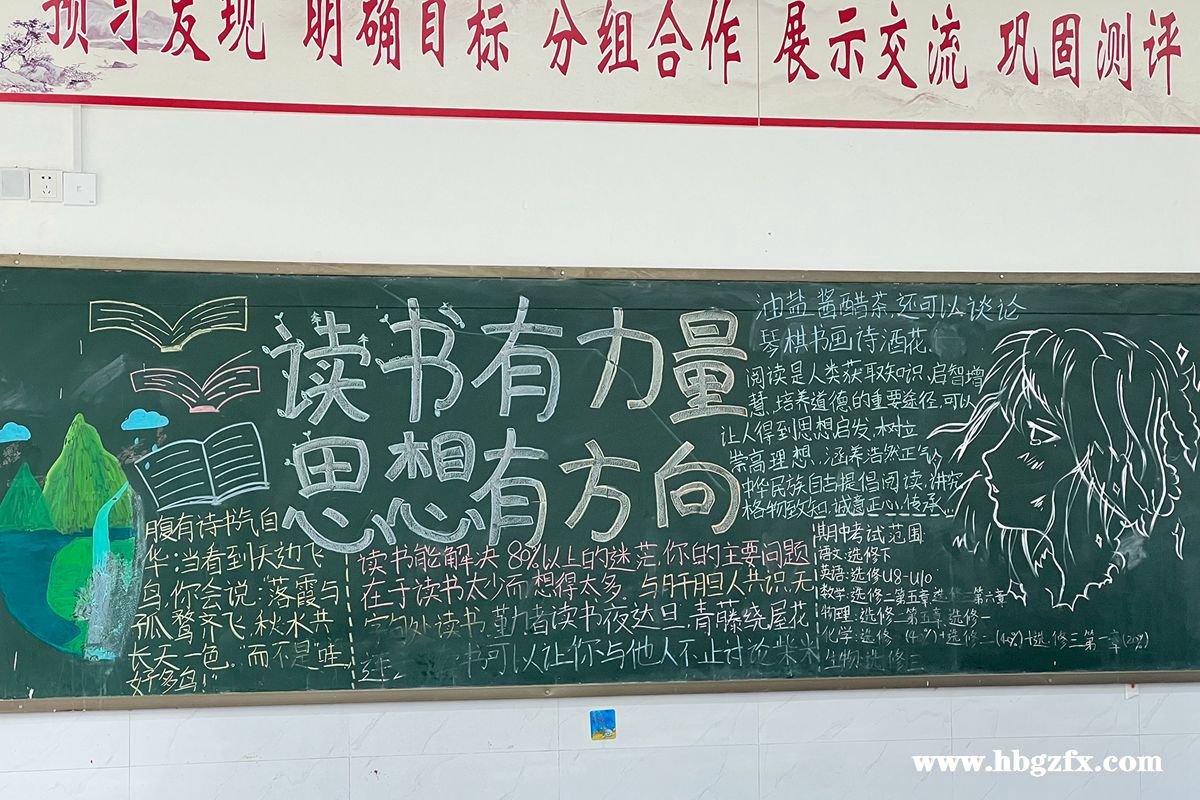 预习发现 明确目标 分组合作 展示交流 巩固测评
读书有力量
思想有方向
腹有诗书气自
华:当看到天边飞
鸟,你会说:"落霞与
孤鹜齐飞,秋水共
长天一色。"而不是"哇
好多鸟!"
读书能解决80%以上的迷茫,你的主要问题
在于读书太少而想得太多.与肝胆人共识,无
字句处读书.勤者读书夜达旦,青藤绕屋花
书可以让你与他人不止讨论柴米
油盐酱醋茶,还可以谈论
琴棋书画诗酒花.
阅读是人类获取知识、启智增
慧、培养道德的重要途径,可以
让人得到思想启发,树立
崇高理想、涵养浩然正气,
中华民族自古提倡阅读,讲究
格物致知,诚意正心,传承
期中考试范围
语文:选修下
英语:选修U8-U10
数学:选修二第五章 选修 第六章
物理:选修二第 章 选修一
化学:选修 (40%)+选修二(40%)+选修三第一章(20%)
生物:选修三
www.hbgzfx.com